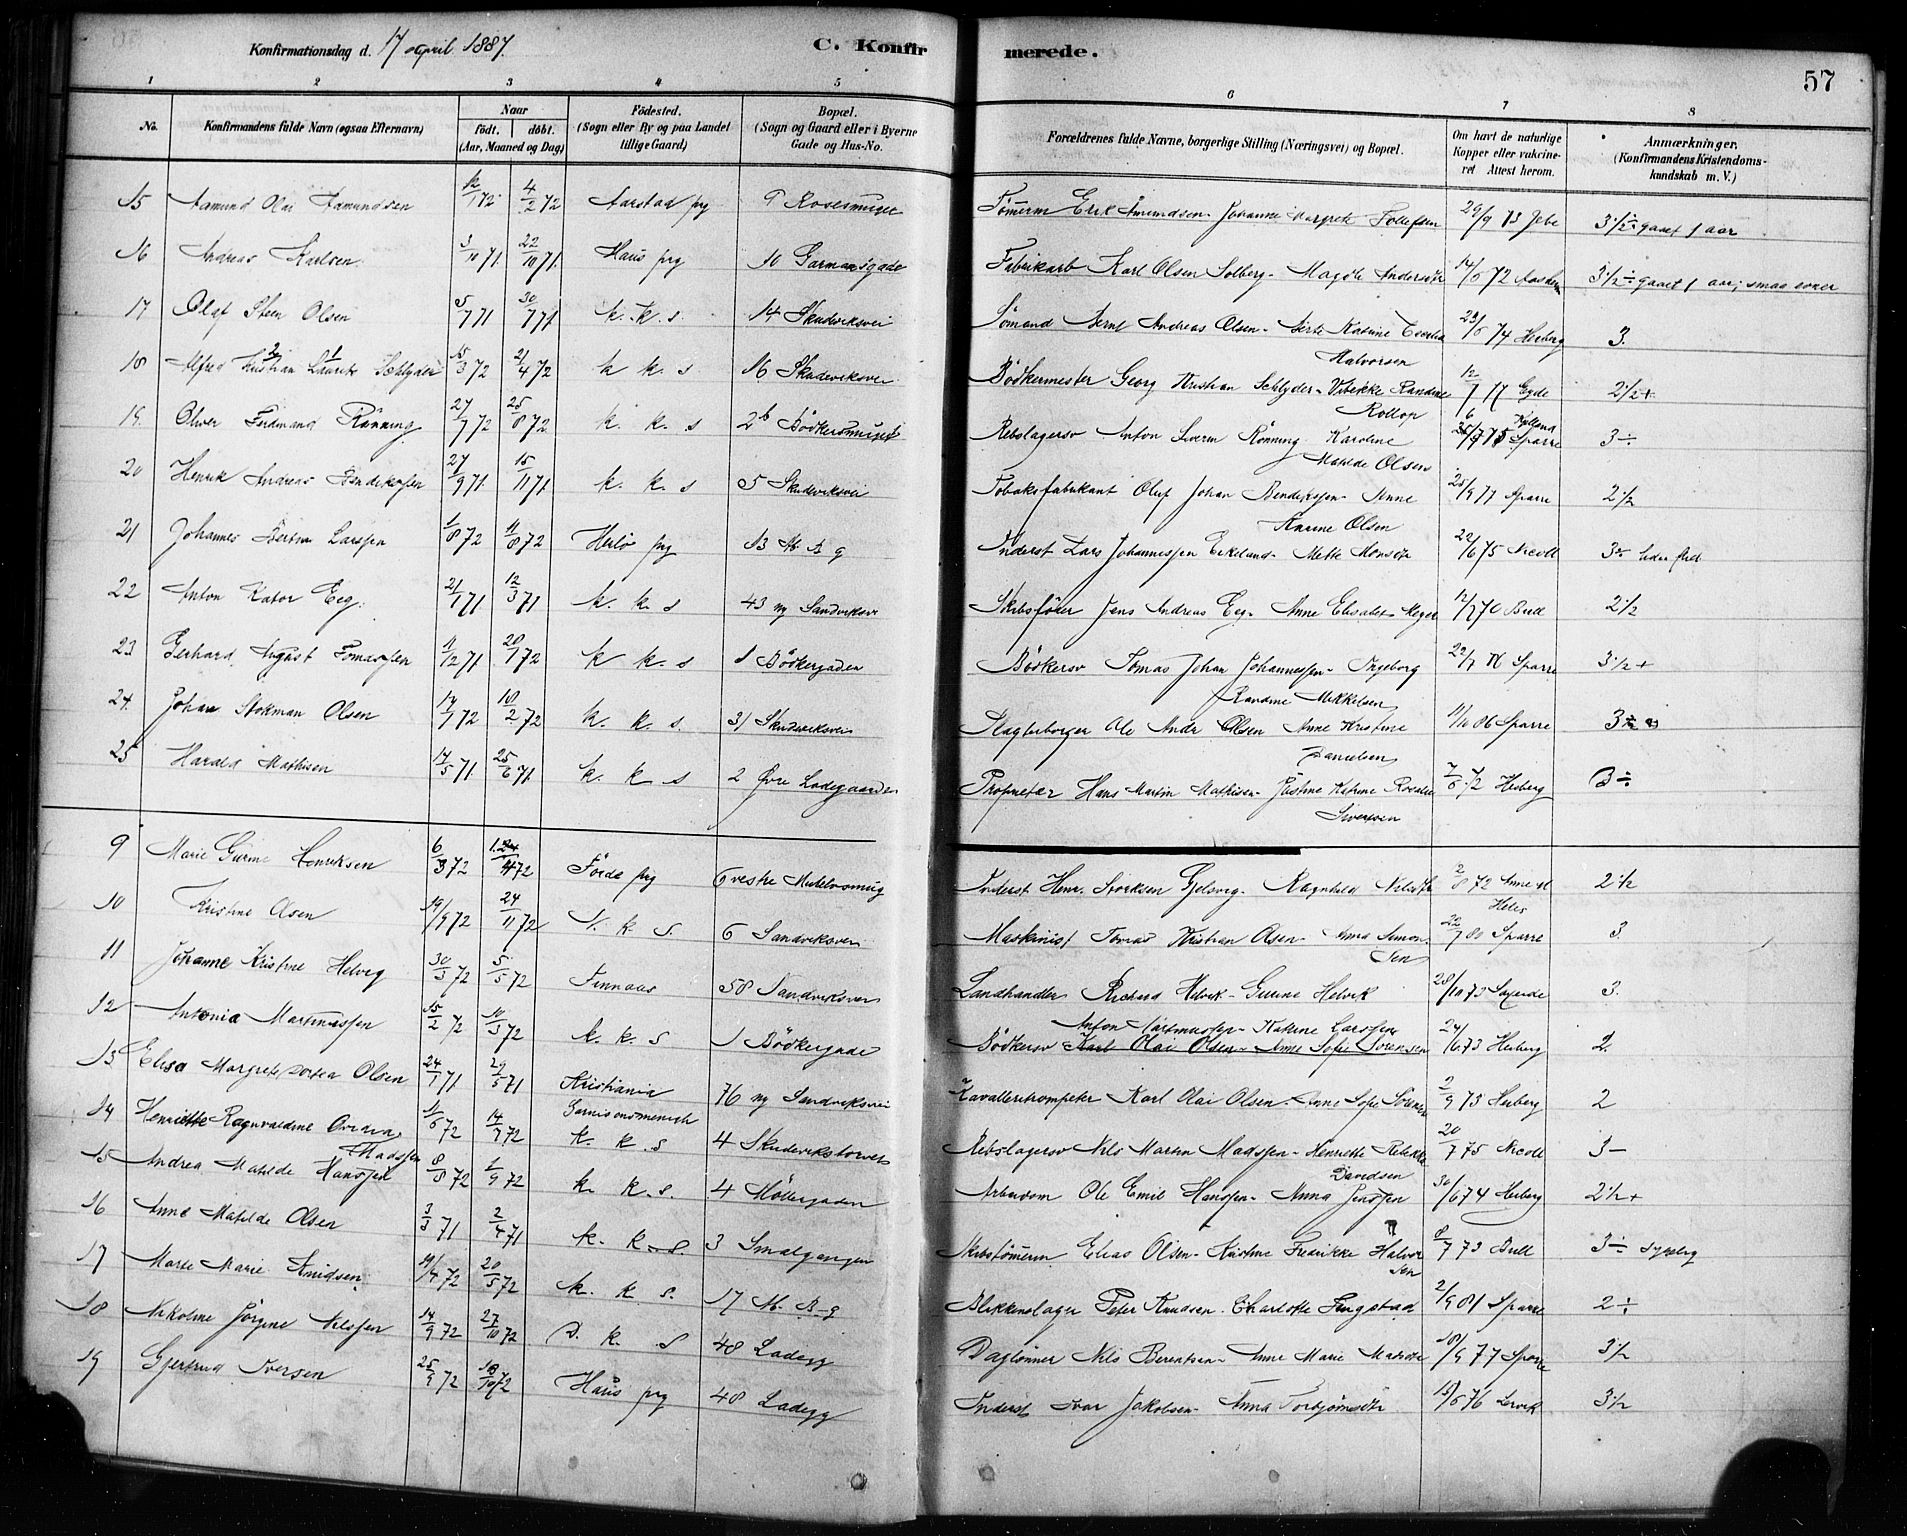 Konfirmationsdag d. 17 april 1887.
C. Konfirmerede.
57
1 2 3 4 5 6 7 8
No.
Konfirmandens fulde Navn (ogsaa Efternavn)
Naar
födt. döbt.
(Aar, Maaned og Dag)
Födested.
(Sogn eller By og paa Landet
tillige Gaard)
Bopæl.
(Sogn og Gaard eller i Byerne
Gade og Hus-No.
Forældrenes fulde Navne, borgerlige Stilling (Næringsvei) og Bopæl.
Om havt de naturlige
Kopper eller vakcine-
ret Attest herom.
Anmærkninger.
(Konfirmandens Kristendoms-
kundskab m. V.)
15 Aamund Olai Aamundsen 12/1 72 4/2 72 Aarstad prg 9 Rosesmuget Tömerm Erik Amundsen - Johanne Margrete Tollefsen 29/9 73 Jebe 3 1/2 ÷ gaaet 1 aar
16 Andreas Karlsen 3/10 71 22/10 71 Haus prg 10 Garmansgade Fabrikarb Karl Olsen Solberg - Magdle Andersdtr 3 1/2 ÷ gaaet 1 aar; smaa evner
17 Olaf Steen Olsen 5/7 71 30/7 71 k. k. s. 14 Skudeviksvei Sömand Bernt Andreas Olsen - Katrine Halvorsen 74 Heiberg 3.
18 Alfred Kristian Laurits Schlyder 15/3 72 21/4 72 k k. s 16 Skudeviksvei Bödkermester Georg Kristian Schlyder - Vibekke Randine Rollop 12/7 77 Egde 2 1/2 +
19. Oliver Ferdinand Rönning 27/7 72 25/8 72 k. k. s 2b Bödkersmuget Rebslagersv Anton Rönning Karoline Matilde Olsen Sparre 3 ÷
20 Henrik Andreas Bendiksen 27/9 71 15/11 71 k. k. s 5 Skudeviksvei Tobaksfabrikant Oluf Johan Bendiksen - Anne Karine Olsen 25/9 77 Sparre 2 1/2
21 Johannes Bertin Larsen 1/8 72 11/8 72 Herlö prg 13 M. B. g Inderst Lars Johannessen Eikeland - Mette Monsdtr 22/6 75 Nicoll
22 Anton Kator Eeg. 21/1 71 12/3 71 k. k. s 43 ny Sandviksv Skibsförer Jens Andreas Eeg - Anne Elisabet Meyer Bull 2 1/2
23 Gerhard August Tomassen 11/12 71 20/1 72 k k. s 1 Bödkergaden Bödkersv Tomas Johan Johannessen - Ingeborg Randine Mikkelsen Sparre 3 1/2 +
24. Johan Stokman Olsen 14/1 72 18/2 72 k. k. s. 31 Skudeviksvei Slagterborger Ole Andr Olsen Anne Kristine Danielsen 86 Sparre
25 Harald Matisen 14/5 71 25/6 71 k. k s 2 Øvre Ladegaarden Proprietær Hans Martin Mathisen - Justine Katrine Rosalie Sivertsen 7/6 72 Heiberg 3 ÷
9 Marie Gurine Henriksen 6/3 72 72 Förde prg 6 vestre Muralvsmug Inderst Henr. Gjelsvig - Ragnhild Nilsdtr 2/8 72 2 1/2
10 Kristine Olsen 19/9 72 24/11 72 N. k. s. 6 Sandviksvei Maskinist Tomas Kristian Olsen - Anna Simonsen 22/7 80 Sparre 3.
11 Johanne Kristine Helvig 30/3 72 5/5 72 Finnaas 50 Sandviksvei Landhandler Richard Helvik - Gurine Helvik 28/10 73 3.
12 Antonia Martinussen 15/2 72 10/3 72 k. k. s 1 Bödkergade Bödkersv Karl Olai Olsen - Anne Sofie Sorensen Anton Martinussen - Katrine Larssen 24/6 73 Heiberg 2.
13 Elisa Margrete Dortea Olsen 24/1 71 29/5 71 Kristiania Garnisonsmenigh 76 ny Sandviksvei Kavalleritrompeter Karl Olai Olsen. Anne Sofie Sörensen 2/9 75 Heiberg 2
14 Henriette Ragnvaldine Ovidia Madsen 11/6 72 14/7 72 k. k. s 4 Skudevikstorvet Rebslagersv Nils Martin Madssen - Henriette Rebekka Davidsen 20/7 75 Nicoll 3 -
15 Andrea Matilde Hanssen 8/8 72 1/9 72 k. k. s. 4 Möllergaden Arbeidsm Ole Emil Hanssen - Anna Jenssen 30/6 74 Heiberg 2 1/2 +
16 Anne Matilde Olsen 3/3 71 2/4 71 k. k. s 3 Smalgangen Skibstömerm Elias Olsen - Kristine Fredrikke Halvorsen 8/7 73 Bull 3 ÷ sygelig
17 Marte Marie Knudsen 19/4 72 20/5 72 k. k s. 17 M. B-g Blikkenslager Peter Knudsen. Charlotte Fingstad 2/9 81 Sparre 2 ÷
18 Nikoline Jörgine Nilssen 14/9 72 27/10 72 D. k. s 48 Ladegg Daglönner Nils Berentsen - Anne Marie Matsdtr 18/9 77 Sparre 3 1/2
19 Gjertrud Iversen 25/9 72 18/10 72 Haus prg 48 Ladegg Inderst Ivar Jakobsen - Anna Torbjörnsdtr 15/6 76 Lervik 3 1/2